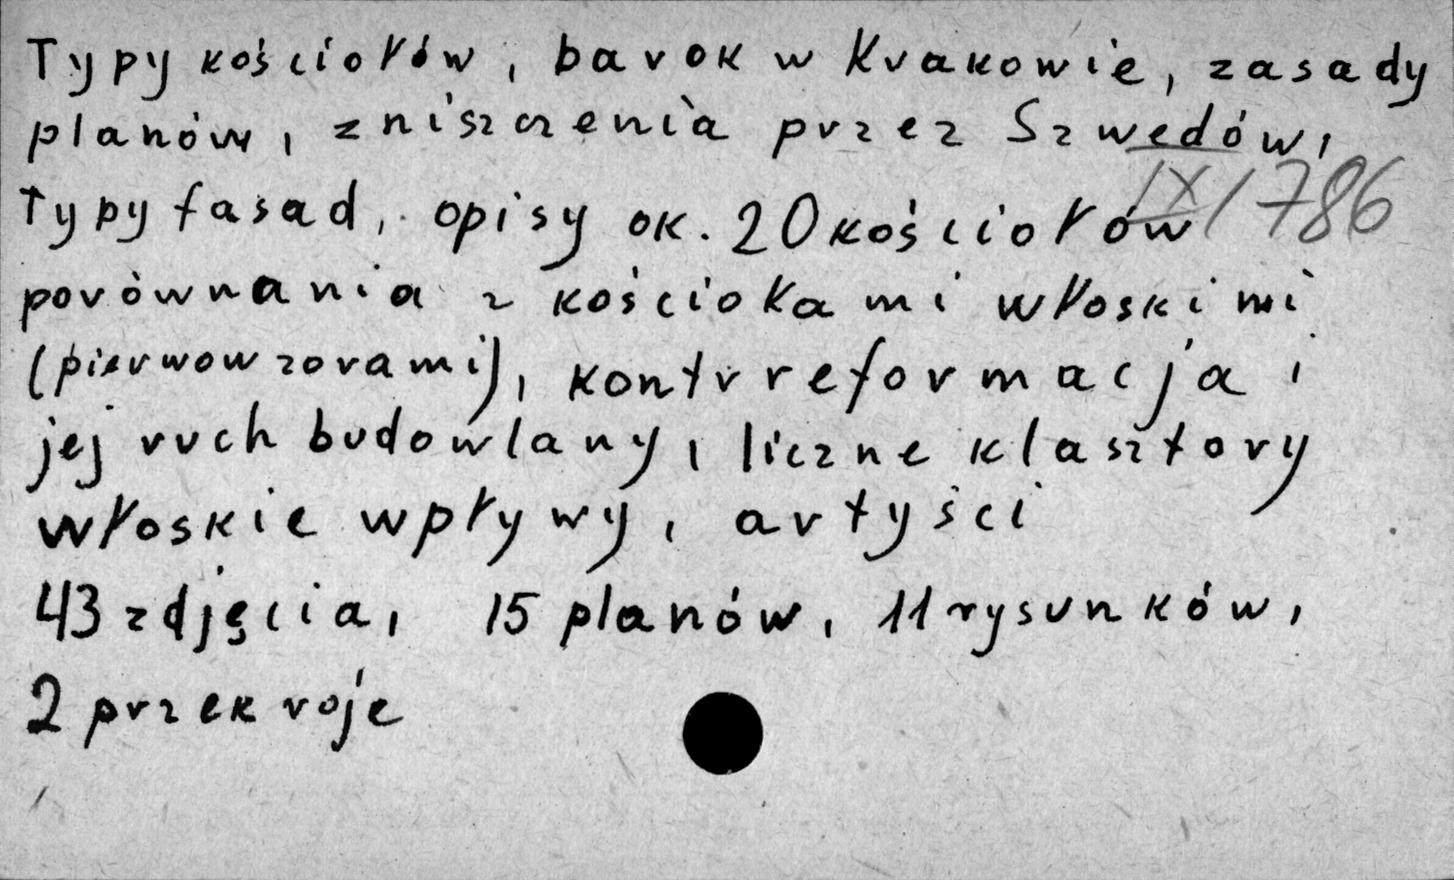 Typy kościołów, barok w Krakowie, zasady
planów, zniszczenia przez Szwedów,
IX/786
typy fasad, opisy ok. 20 kościołów
porównania z kościołami włoskimi
(pierwowzorami), kontrreformacja i
jej ruch budowlany, liczne klasztory
włoskie wpływy, artyści
43 zdjęcia, 15 planów, 11 rysunków,
2 przekroje